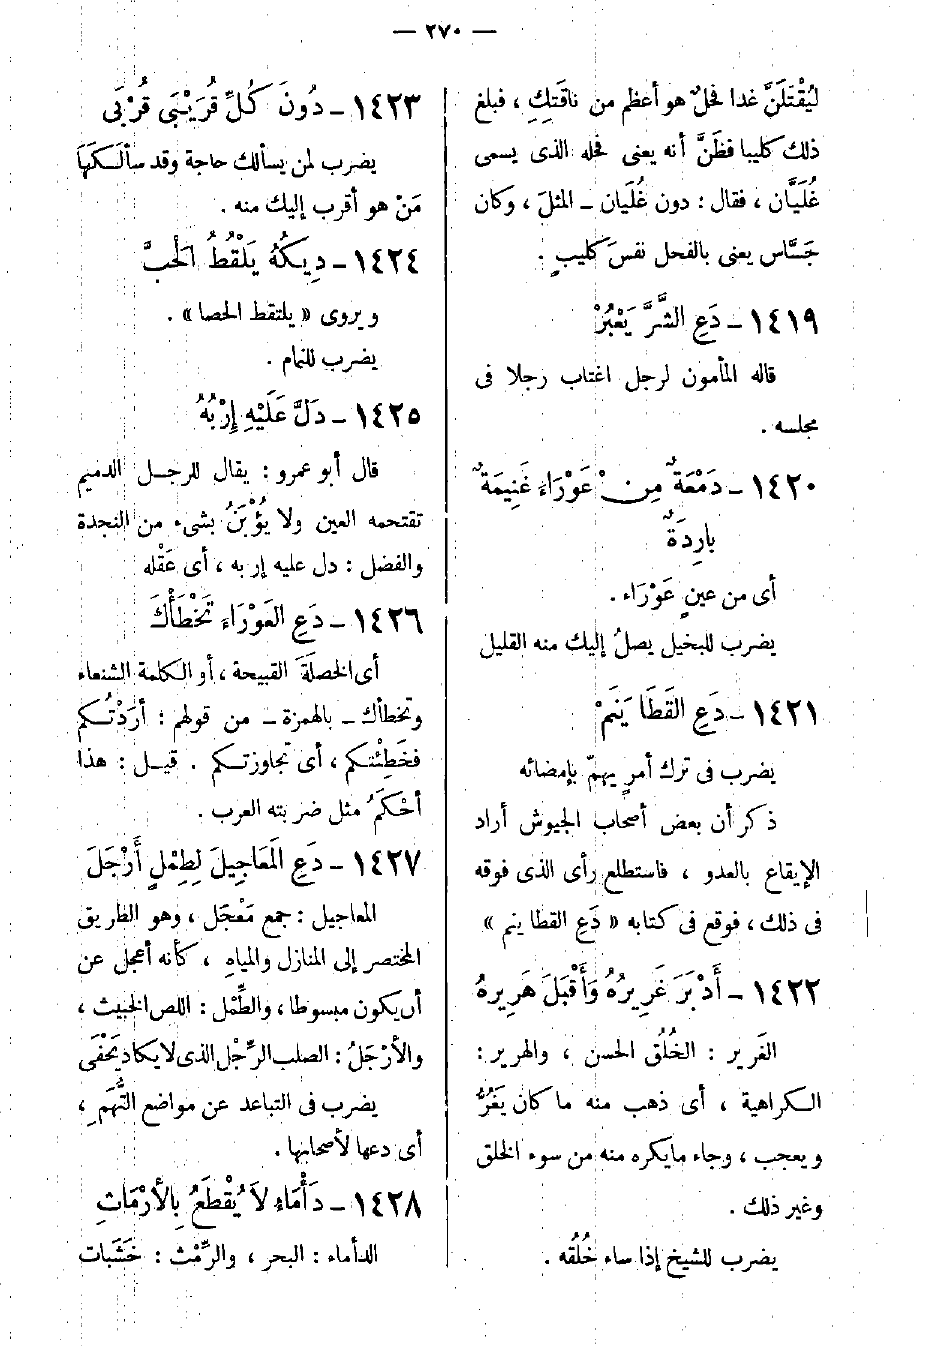 — ٢٧٠ —
لَيُقْتَلَنَّ غدا فحلٌ هو أعظم من ناقَتِكِ ، فبلغ
ذلك كليبا فظَنَّ أنه يعنى فحله الذى يسمى
غُلَيَّان ، فقال : دون غُلَيان ــ المثلَ ، وكان
جَسَّاس يعنى بالفحل نفسَ كليبٍ .
١٤١٩ ــ دَعِ الشَّرَّ يَعْبُرْ
قاله المأمون لرجل اغتاب رجلا فى
مجلسه .
١٤٢٠ ــ دَمْعَةٌ مِنْ عَوْرَاءَ غَنِيمَةٌ
بارِدَةٌ
أى من عينٍ عَوْرَاء .
يضرب للبخيل يصلُ إليك منه القليل
١٤٢١ ــ دَعِ القَطَا يَنَمْ
يضرب فى ترك أمرٍ يهمّ بإمضائه
ذكر أن بعض أصحاب الجيوش أراد
الإيقاع بالعدو ، فاستطلع رأى الذى فوقه
فى ذلك ، فوقع فى كتابه « دَعِ القطا ينم »
١٤٢٢ ــ أَدْبَرَ غَرِيرُهُ وَأَقْبَلَ هَرِيرهُ
الغَرير : الخُلُق الحسن ، والهرير :
الكراهية ، أى ذهب منه ما كان يَغُرُّ
ويعجب ، وجاء مايكره منه من سوء الخلق
وغير ذلك .
يضرب للشيخ إذا ساء خُلُقه .
١٤٢٣ ــ دُونَ كُلِّ قُرَيْبَى قُرْبَى
يضرب لمن يسألك حاجة وقد سألَكَهَا
مَنْ هو أقرب إليك منه .
١٤٢٤ ــ دِيكُهُ يَلْقُطُ الحَبَّ
ويروى « يلتقط الحصا » .
يضرب للنمام .
١٤٢٥ ــ دَلَّ عَلَيْهِ إِرْبُهُ
قال أبو عمرو : يقال للرجل الدميم
تقتحمه العين ولا يُؤْبَنُ بشىء من النجدة
والفضل : دل عليه إربه ، أى عَقْله
١٤٢٦ ــ دَعِ العَوْرَاءَ تَخْطَأْكَ
أى الخصلَةَ القبيحة ، أو الكلمة الشنعاء
وتخطأك ــ بالهمزة ــ من قولهم : أرَدْتُكم
فَخَطِئْتكم ، أى تجاوزتكم . قيل : هذا
أحْكَمُ مثل ضربته العرب .
١٤٢٧ ــ دَعِ المَعَاجِيلَ لِطِمْلٍ أَرْجَلَ
المعاجيل : جمع مَعْجَل ، وهو الطريق
المختصر إلى المنازل والمياهِ ، كأنه أعجل عن
أن يكون مبسوطا ، والطِّمْل : اللص الخبيث ،
والأرْجَلُ : الصلب الرِّجْل الذى لا يكاد يَحْفَى
يضرب فى التباعد عن مواضع التُّهَمِ ،
أى دعها لأصحابها .
١٤٢٨ ــ دَأْمَاءِ لاَ يُقْطَعُ بِالأَرْمَاثِ
الدأماء : البحر ، والرِّمْث : خَشَبات